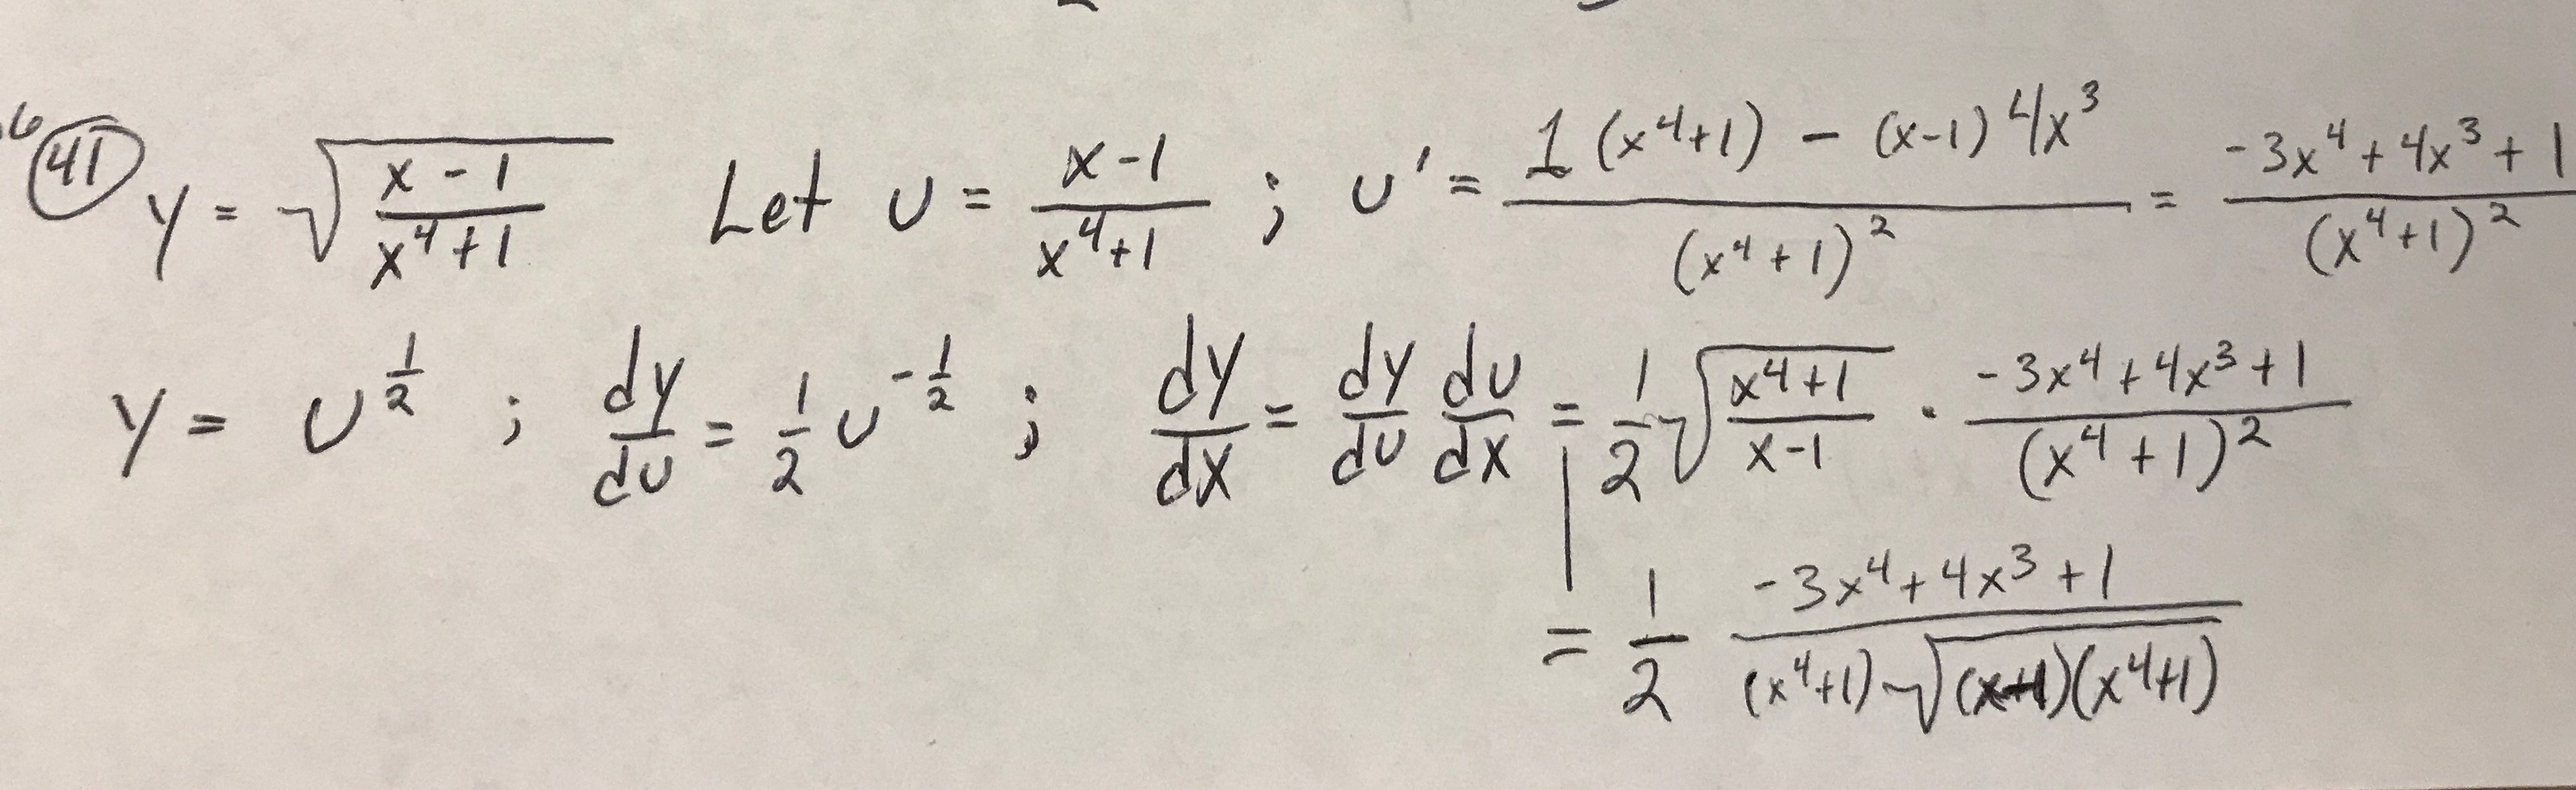 .6 (41) y = √((x-1)/(x⁴+1)) Let u = (x-1)/(x⁴+1) ; u' = (1(x⁴+1) - (x-1)4x³)/(x⁴+1)² = (-3x⁴+4x³+1)/(x⁴+1)²
y = u^(1/2) ; dy/du = 1/2 u^(-1/2) ; dy/dx = dy/du du/dx = 1/2 √((x⁴+1)/(x-1)) · (-3x⁴+4x³+1)/(x⁴+1)²
= 1/2 (-3x⁴+4x³+1)/((x⁴+1)√((x-1)(x⁴+1)))